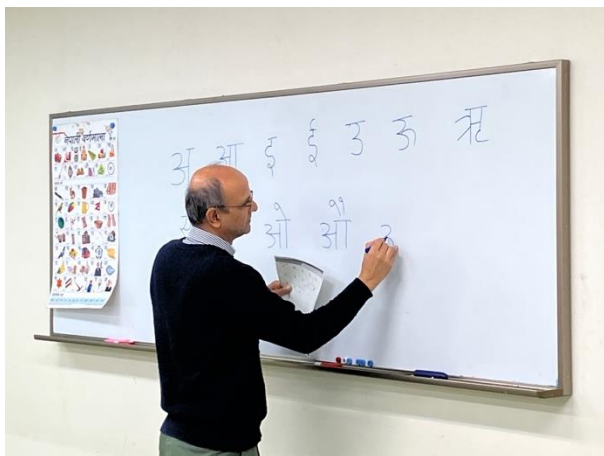 नेपाली वर्णमाला
अ आ इ ई उ ऊ ऋ
ओ औ